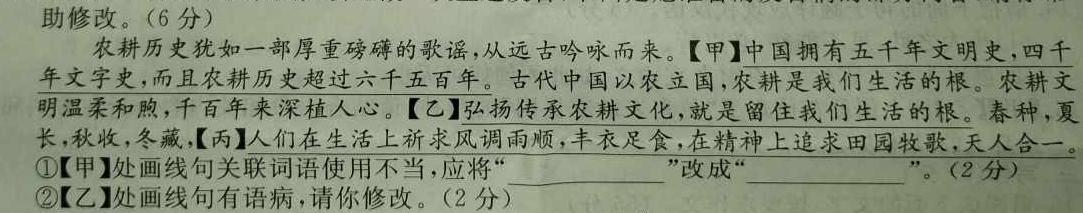 助修改。(6分)
农耕历史犹如一部厚重磅礴的歌谣,从远古吟咏而来。【甲】中国拥有五千年文明史,四千
年文字史,而且农耕历史超过六千五百年。古代中国以农立国,农耕是我们生活的根。农耕文
明温柔和煦,千百年来深植人心。【乙】弘扬传承农耕文化,就是留住我们生活的根。春种,夏
长,秋收,冬藏,【丙】人们在生活上祈求风调雨顺,丰衣足食,在精神上追求田园牧歌,天人合一。
①【甲】处画线句关联词语使用不当,应将“                ”改成“                ”。(2分)
②【乙】处画线句有语病,请你修改。(2分)